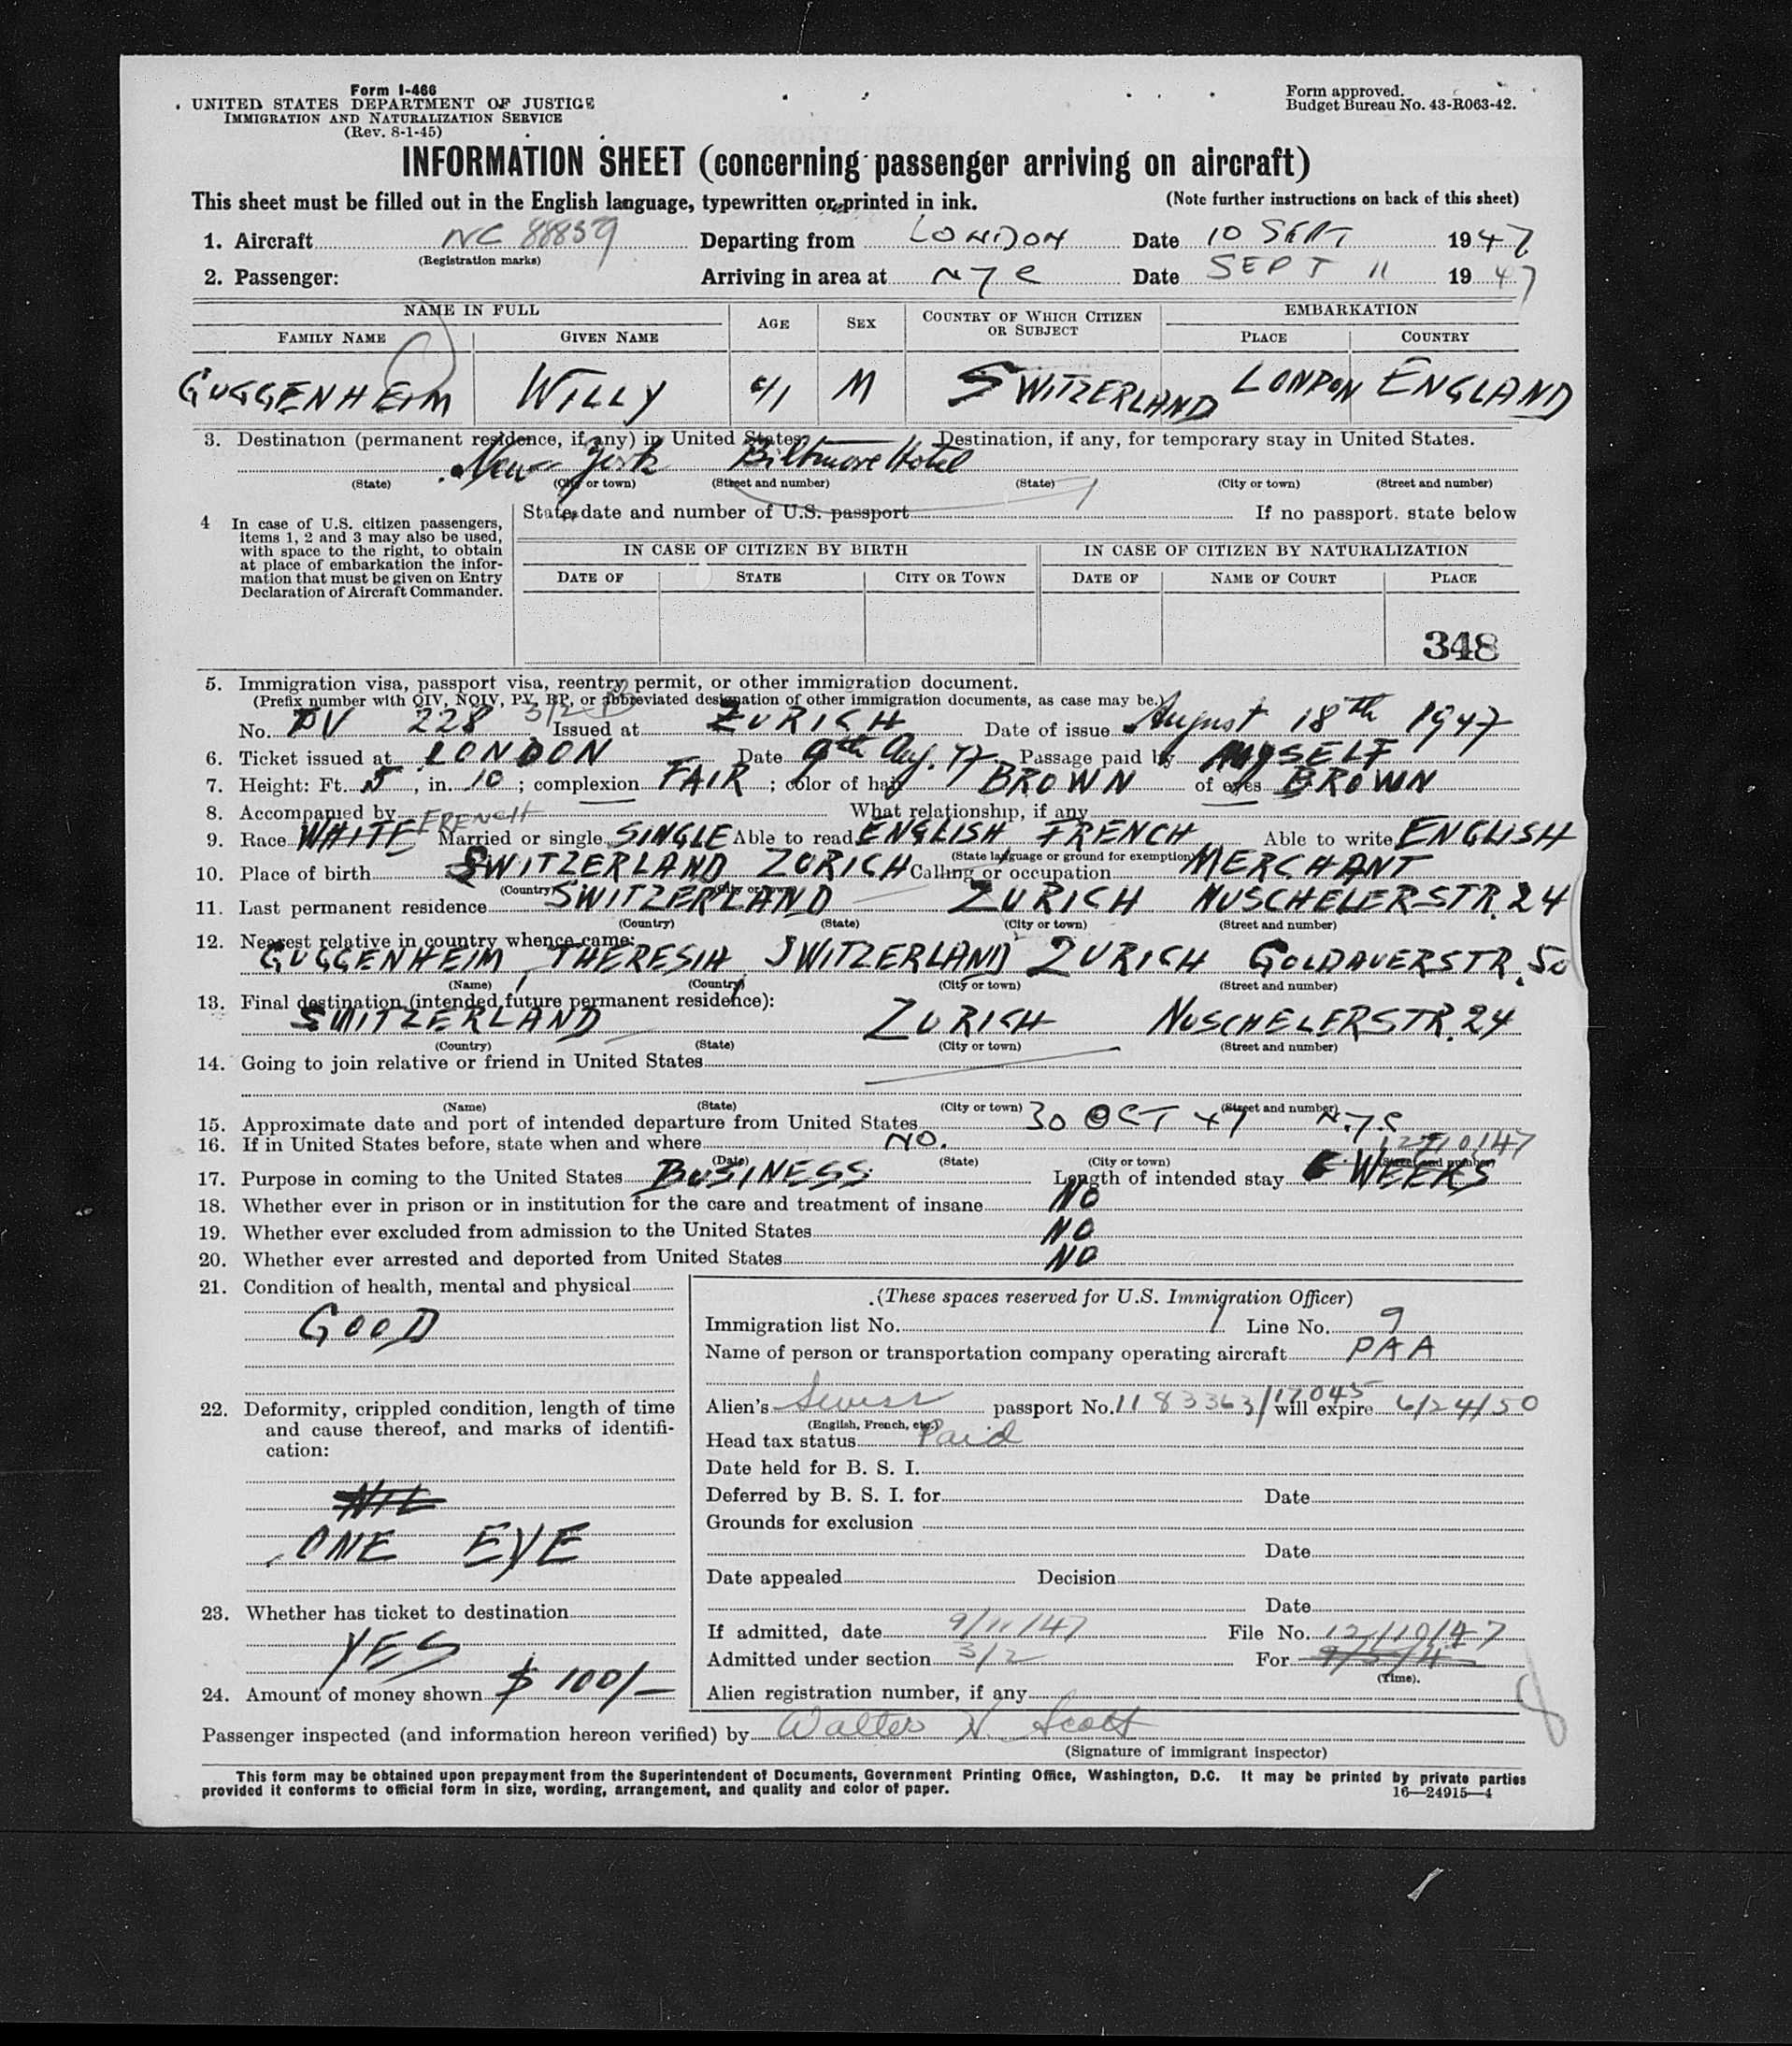 Form I-466
UNITED STATES DEPARTMENT OF JUSTICE
IMMIGRATION AND NATURALIZATION SERVICE
(Rev. 8-1-45)
Form approved.
Budget Bureau No. 43-R063-42.
INFORMATION SHEET (concerning passenger arriving on aircraft)
This sheet must be filled out in the English language, typewritten or printed in ink. (Note further instructions on back of this sheet)
1. Aircraft NC 88859 Departing from LONDON Date 10 SEPT 1947
(Registration marks)
2. Passenger: Arriving in area at NYC Date SEPT 11 1947
NAME IN FULL AGE SEX COUNTRY OF WHICH CITIZEN OR SUBJECT EMBARKATION
FAMILY NAME GIVEN NAME PLACE COUNTRY
GUGGENHEIM WILLY 41 M SWITZERLAND LONDON ENGLAND
3. Destination (permanent residence, if any) in United States Destination, if any, for temporary stay in United States.
New York Biltmore Hotel
(State) (City or town) (Street and number) (State) (City or town) (Street and number)
4 In case of U.S. citizen passengers, items 1, 2 and 3 may also be used, with space to the right, to obtain at place of embarkation the information that must be given on Entry Declaration of Aircraft Commander.
State, date and number of U.S. passport If no passport. state below
IN CASE OF CITIZEN BY BIRTH IN CASE OF CITIZEN BY NATURALIZATION
DATE OF STATE CITY OR TOWN DATE OF NAME OF COURT PLACE
348
5. Immigration visa, passport visa, reentry permit, or other immigration document.
(Prefix number with QIV, NQIV, PV, RP, or abbreviated designation of other immigration documents, as case may be.)
3/2 B
No. PV 228 Issued at ZURICH Date of issue August 18th 1947
6. Ticket issued at LONDON Date 9th Aug. 47 Passage paid by MYSELF
7. Height: Ft. 5, in. 10; complexion FAIR; color of hair BROWN of eyes BROWN
8. Accompanied by What relationship, if any
FRENCH
9. Race WHITE Married or single SINGLE Able to read ENGLISH FRENCH Able to write ENGLISH
(State language or ground for exemption)
10. Place of birth SWITZERLAND ZURICH Calling or occupation MERCHANT
(Country) (City or town)
11. Last permanent residence SWITZERLAND ZURICH NUSCHELERSTR. 24
(Country) (State) (City or town) (Street and number)
12. Nearest relative in country whence came:
GUGGENHEIM, THERESIA, SWITZERLAND ZURICH GOLDAUERSTR. 50
(Name) (Country) (City or town) (Street and number)
13. Final destination (intended future permanent residence):
SWITZERLAND ZURICH NUSCHELERSTR. 24
(Country) (State) (City or town) (Street and number)
14. Going to join relative or friend in United States
(Name) (State) (City or town) (Street and number)
15. Approximate date and port of intended departure from United States 30 OCT 47 N.Y.C
16. If in United States before, state when and where NO. 12/10/47
(Date) (State) (City or town) (Street and number)
17. Purpose in coming to the United States BUSINESS Length of intended stay WEEKS
18. Whether ever in prison or in institution for the care and treatment of insane NO
19. Whether ever excluded from admission to the United States NO
20. Whether ever arrested and deported from United States NO
21. Condition of health, mental and physical
GOOD
22. Deformity, crippled condition, length of time and cause thereof, and marks of identification:
NIL
ONE EYE
23. Whether has ticket to destination
YES
24. Amount of money shown $ 100/-
(These spaces reserved for U.S. Immigration Officer)
Immigration list No. 1 Line No. 9
Name of person or transportation company operating aircraft PAA
Alien's Swiss passport No. 1183363/17045 will expire 6/24/50
(English, French, etc.)
Head tax status Paid
Date held for B. S. I.
Deferred by B. S. I. for Date
Grounds for exclusion
Date
Date appealed Decision
Date
If admitted, date 9/11/47 File No. 12/10/47
Admitted under section 3/2 For
(Time).
Alien registration number, if any
8
Passenger inspected (and information hereon verified) by Walter N. Scott
(Signature of immigrant inspector)
This form may be obtained upon prepayment from the Superintendent of Documents, Government Printing Office, Washington, D.C. It may be printed by private parties
provided it conforms to official form in size, wording, arrangement, and quality and color of paper. 16—24915—4